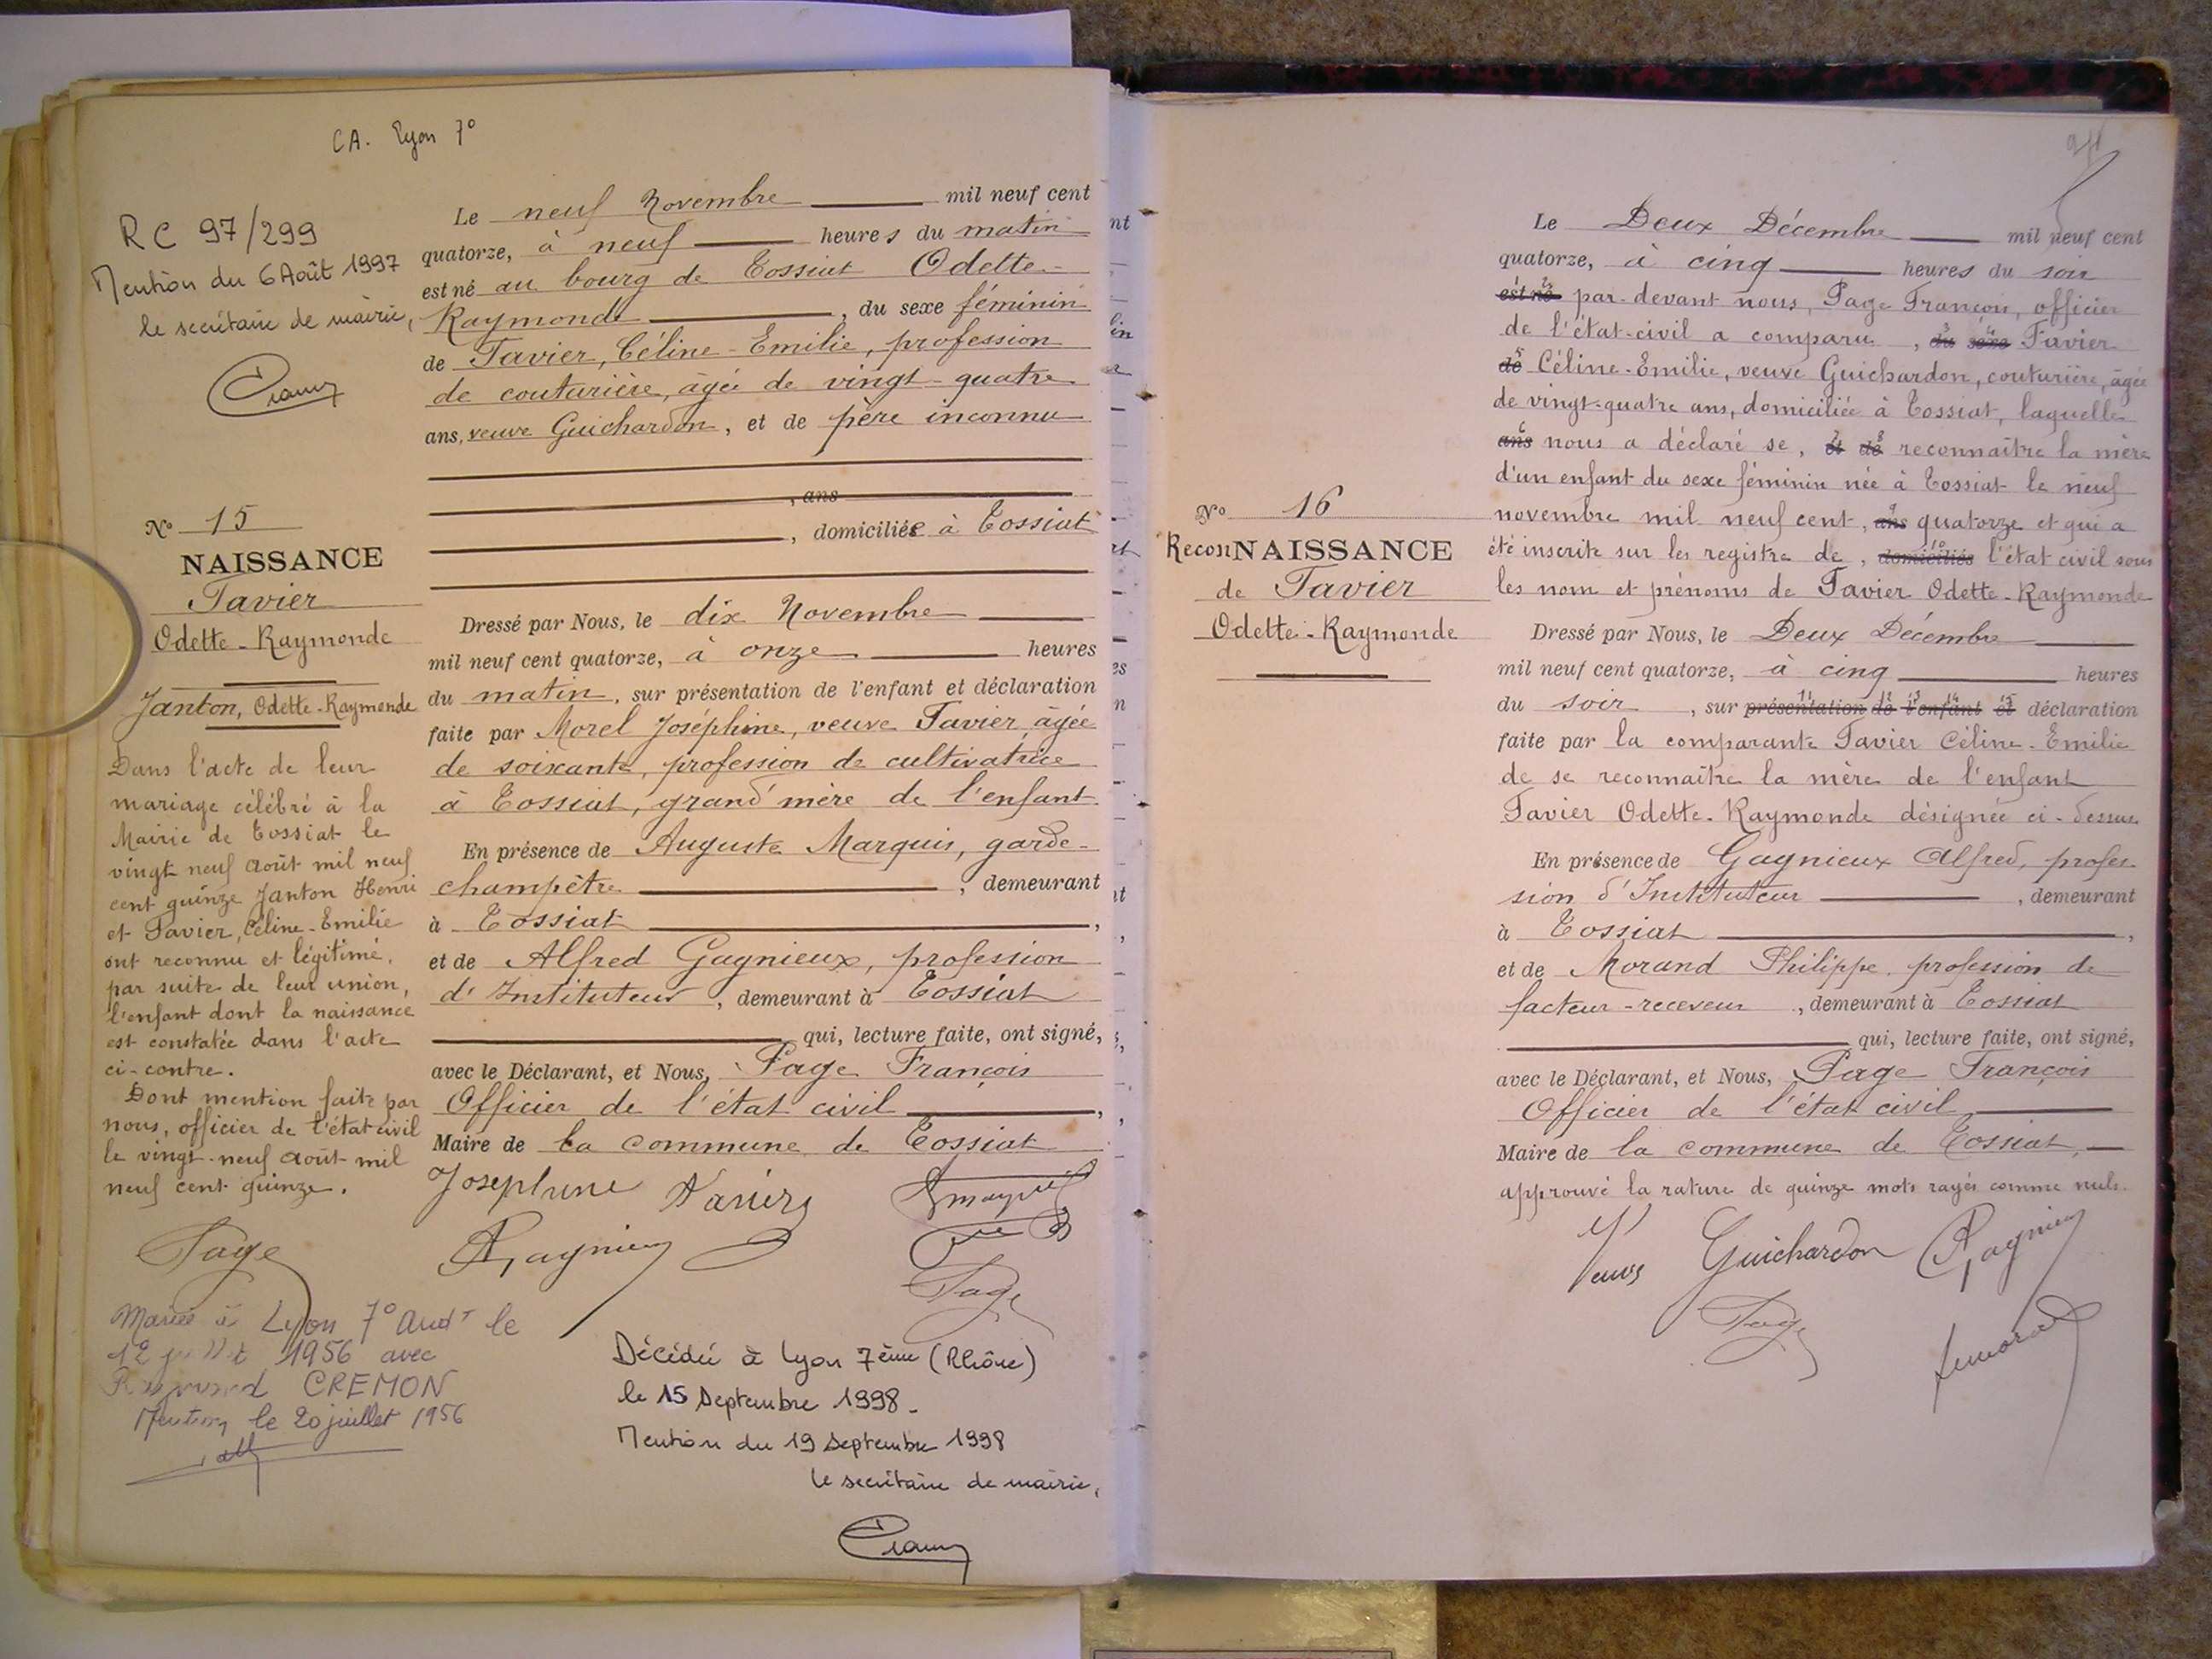 CA. Lyon 7°
RC 97/299
Mention du 6 Août 1997
le secrétaire de mairie,
Le neuf Novembre mil neuf cent
quatorze, à neuf heures du matin
est né au bourg de Tossiat Odette
Raymonde, du sexe féminin
de Favier, Céline-Emilie, profession
de couturière, âgée de vingt-quatre
ans, veuve Guichardon, et de père inconnu
, ans
, domiciliée à Tossiat
N° 15
NAISSANCE
Favier
Odette-Raymonde
Janton, Odette-Raymonde
Dans l'acte de leur
mariage célébré à la
Mairie de Tossiat le
vingt neuf août mil neuf
cent quinze Janton Henri
et Favier, Céline-Emilie
ont reconnu et légitimé,
par suite de leur union,
l'enfant dont la naissance
est constatée dans l'acte
ci-contre.
Dont mention faite par
nous, officier de l'état civil
le vingt-neuf août mil
neuf cent quinze.
Page
Dressé par Nous, le dix Novembre
mil neuf cent quatorze, à onze heures
du matin, sur présentation de l'enfant et déclaration
faite par Morel Joséphine, veuve Favier, âgée
de soixante, profession de cultivatrice
à Tossiat, grand'mère de l'enfant
En présence de Auguste Marquis, garde-
champêtre, demeurant
à Tossiat,
et de Alfred Gagnieux, profession
d'Instituteur, demeurant à Tossiat
qui, lecture faite, ont signé,
avec le Déclarant, et Nous, Page François
Officier de l'état civil,
Maire de la commune de Tossiat
Josephine Favier
Gagnieux
Page
Mariée à Lyon 7° Arrdt le
12 juillet 1956 avec
Raymond CREMON
Mention le 20 juillet 1956
Décédée à Lyon 7ème (Rhône)
le 15 Septembre 1998.
Mention du 19 Septembre 1998
le secrétaire de mairie,
N° 16
ReconNAISSANCE
de Favier
Odette-Raymonde
Le Deux Décembre mil neuf cent
quatorze, à cinq heures du soir
est né par-devant nous, Page François, officier
de l'état-civil a comparu, du sexe Favier
de Céline-Emilie, veuve Guichardon, couturière, âgée
de vingt-quatre ans, domiciliée à Tossiat, laquelle
ans nous a déclaré se, et de reconnaître la mère
d'un enfant du sexe féminin née à Tossiat le neuf
novembre mil neuf cent, ans quatorze et qui a
été inscrite sur les registre de, domiciliés l'état civil sous
les nom et prénoms de Favier Odette-Raymonde
Dressé par Nous, le Deux Décembre
mil neuf cent quatorze, à cinq heures
du soir, sur présentation de l'enfant et déclaration
faite par la comparante Favier Céline-Emilie
de se reconnaître la mère de l'enfant
Favier Odette-Raymonde désignée ci-dessus
En présence de Gagnieux Alfred, profes-
sion d'Instituteur, demeurant
à Tossiat,
et de Morand Philippe, profession de
facteur-receveur, demeurant à Tossiat
qui, lecture faite, ont signé,
avec le Déclarant, et Nous, Page François
Officier de l'état civil
Maire de la commune de Tossiat,
approuvé la rature de quinze mots rayés comme nuls.
Veuve Guichardon Gagnieux
Page